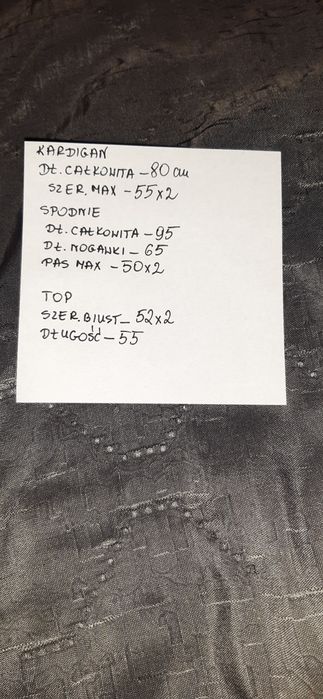 KARDIGAN
DŁ. CAŁKOWITA - 80 cm
SZER. MAX - 55x2
SPODNIE
DŁ. CAŁKOWITA - 95
DŁ. NOGAWKI - 65
PAS MAX - 50x2
TOP
SZER. BIUST - 52x2
DŁUGOŚĆ - 55